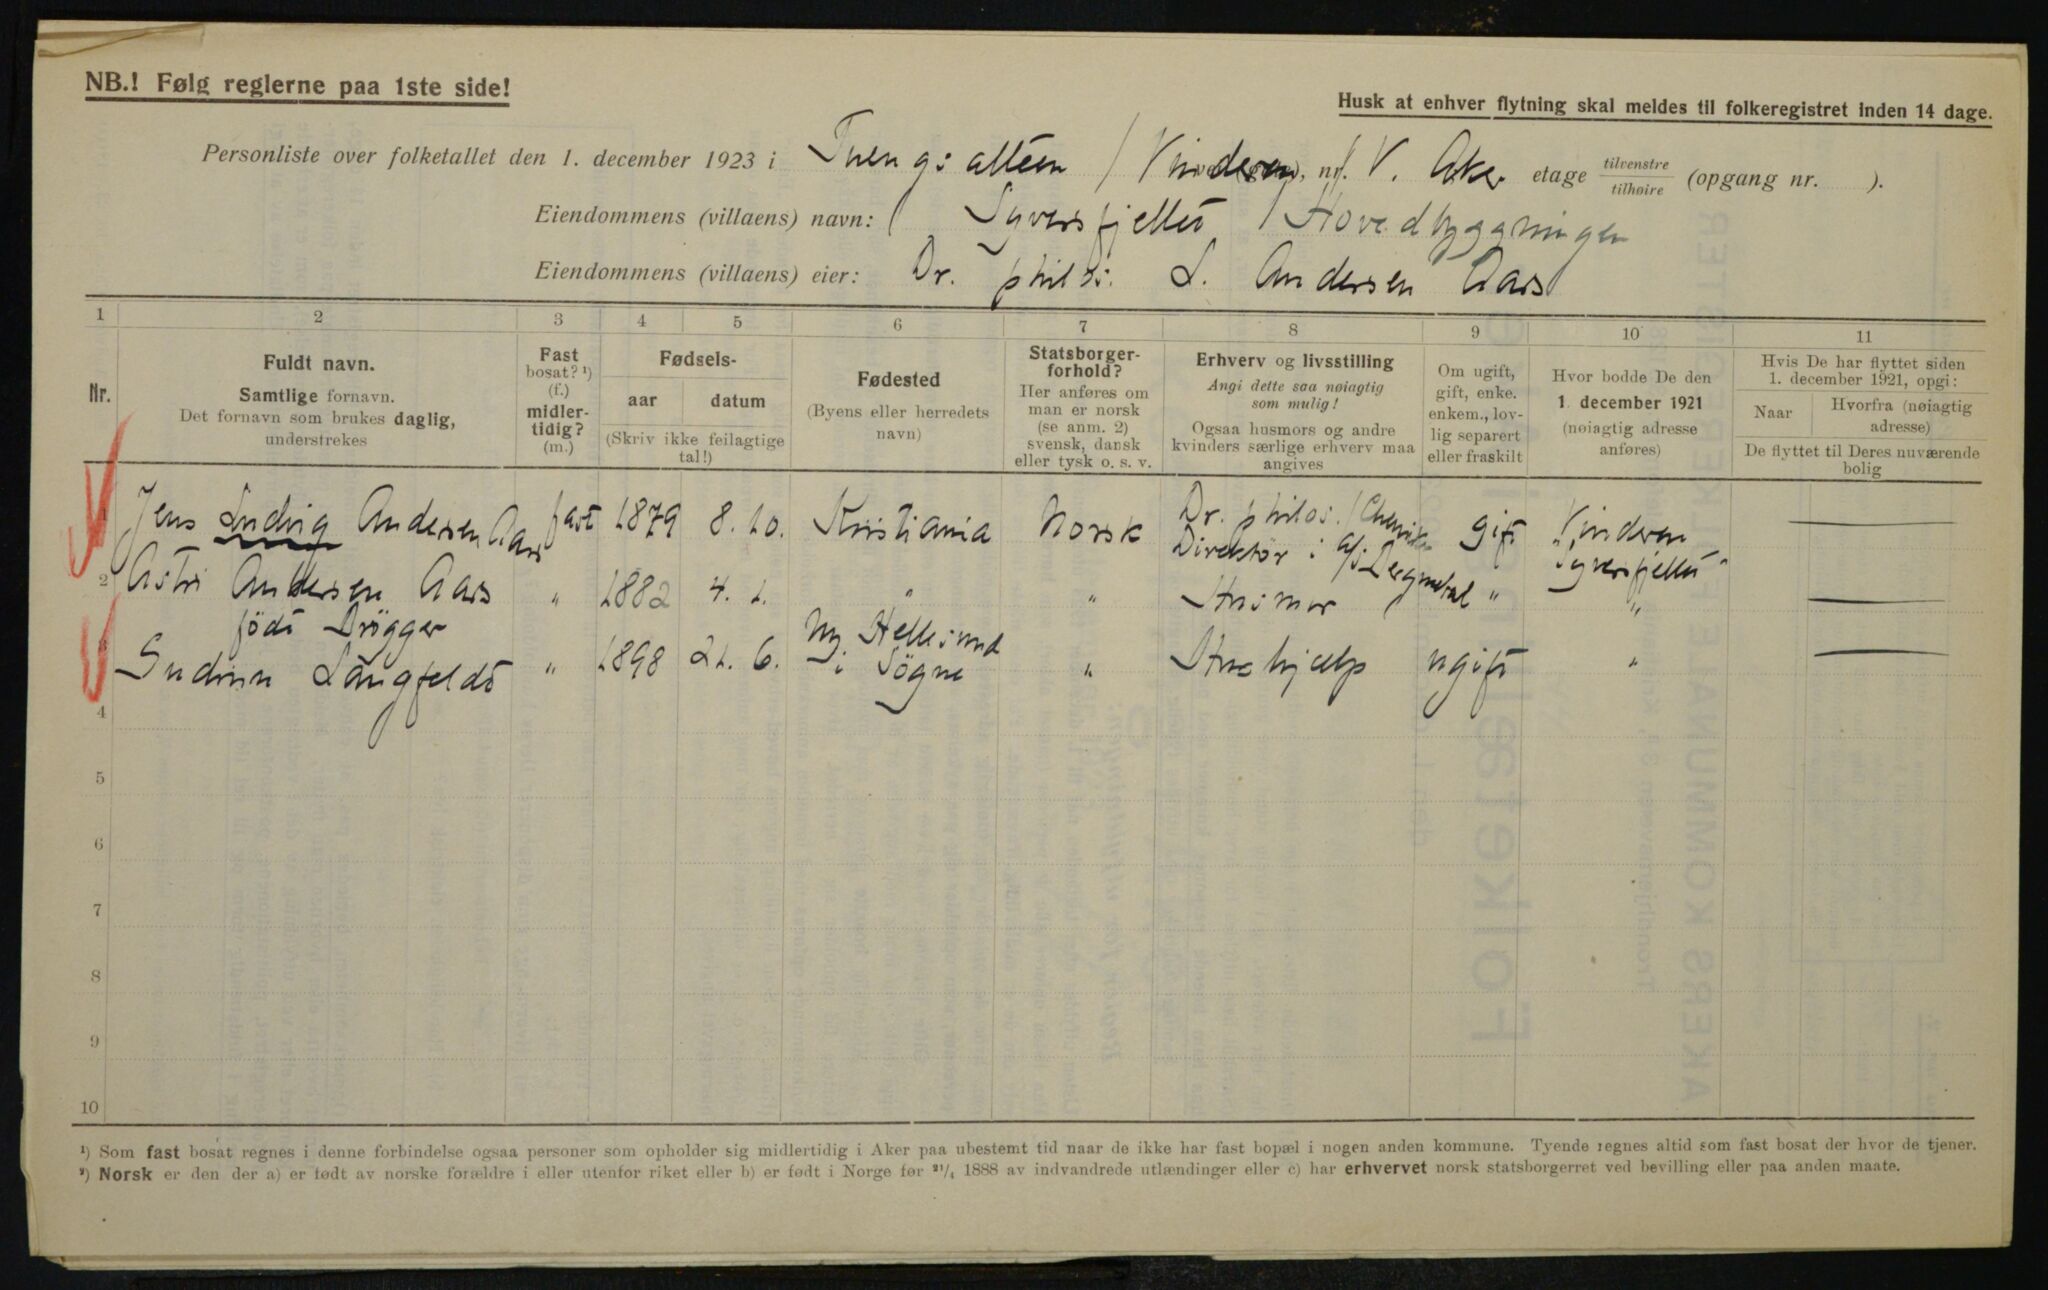 NB.! Følg reglerne paa 1ste side!
Husk at enhver flytning skal meldes til folkeregistret inden 14 dage.
Personliste over folketallet den 1. december 1923 i Tuengs alléen / Vinderen, nr. V. Aker etage tilvenstre / tilhøire (opgang nr. ).
Eiendommens (villaens) navn: Syversfjellet / Hovedbygningen
Eiendommens (villaens) eier: Dr. philos. L. Andersen Aars
1 2 3 4 5 6 7 8 9 10 11
Nr.
Fuldt navn.
Samtlige fornavn.
Det fornavn som brukes daglig,
understrekes
Fast
bosat? ¹)
(f.)
midler-
tidig?
(m.)
Fødsels-
aar datum
(Skriv ikke feilagtige
tal!)
Fødested
(Byens eller herredets
navn)
Statsborger-
forhold?
Her anføres om
man er norsk
(se anm. 2)
svensk, dansk
eller tysk o. s. v.
Erhverv og livsstilling
Angi dette saa nøiagtig
som mulig!
Ogsaa husmors og andre
kvinders særlige erhverv maa
angives
Om ugift,
gift, enke.
enkem., lov-
lig separert
eller fraskilt
Hvor bodde De den
1. december 1921
(nøiagtig adresse
anføres)
Hvis De har flyttet siden
1. december 1921, opgi:
Naar Hvorfra (nøiagtig
adresse)
De flyttet til Deres nuværende
bolig
1 Jens Ludvig Andersen Aars fast 1879 8. 10. Kristiania Norsk Dr. philos. / Chemiker Direktør i a/s Dergmetal gift Vinderen "Syversfjellet" —
2 Astri Andersen Aars " 1882 4. 1. " " Husmor " " —
födt Brögger
3 Gudrun Langfeldt " 1898 21. 6. Ny Hellesund i Sögne " Hushjælp ugift " —
4
5
6
7
8
9
10
¹) Som fast bosat regnes i denne forbindelse ogsaa personer som opholder sig midlertidig i Aker paa ubestemt tid naar de ikke har fast bopæl i nogen anden kommune. Tyende regnes altid som fast bosat der hvor de tjener.
²) Norsk er den der a) er født av norske forældre i eller utenfor riket eller b) er født i Norge før ²¹/₄ 1888 av indvandrede utlændinger eller c) har erhvervet norsk statsborgerret ved bevilling eller paa anden maate.